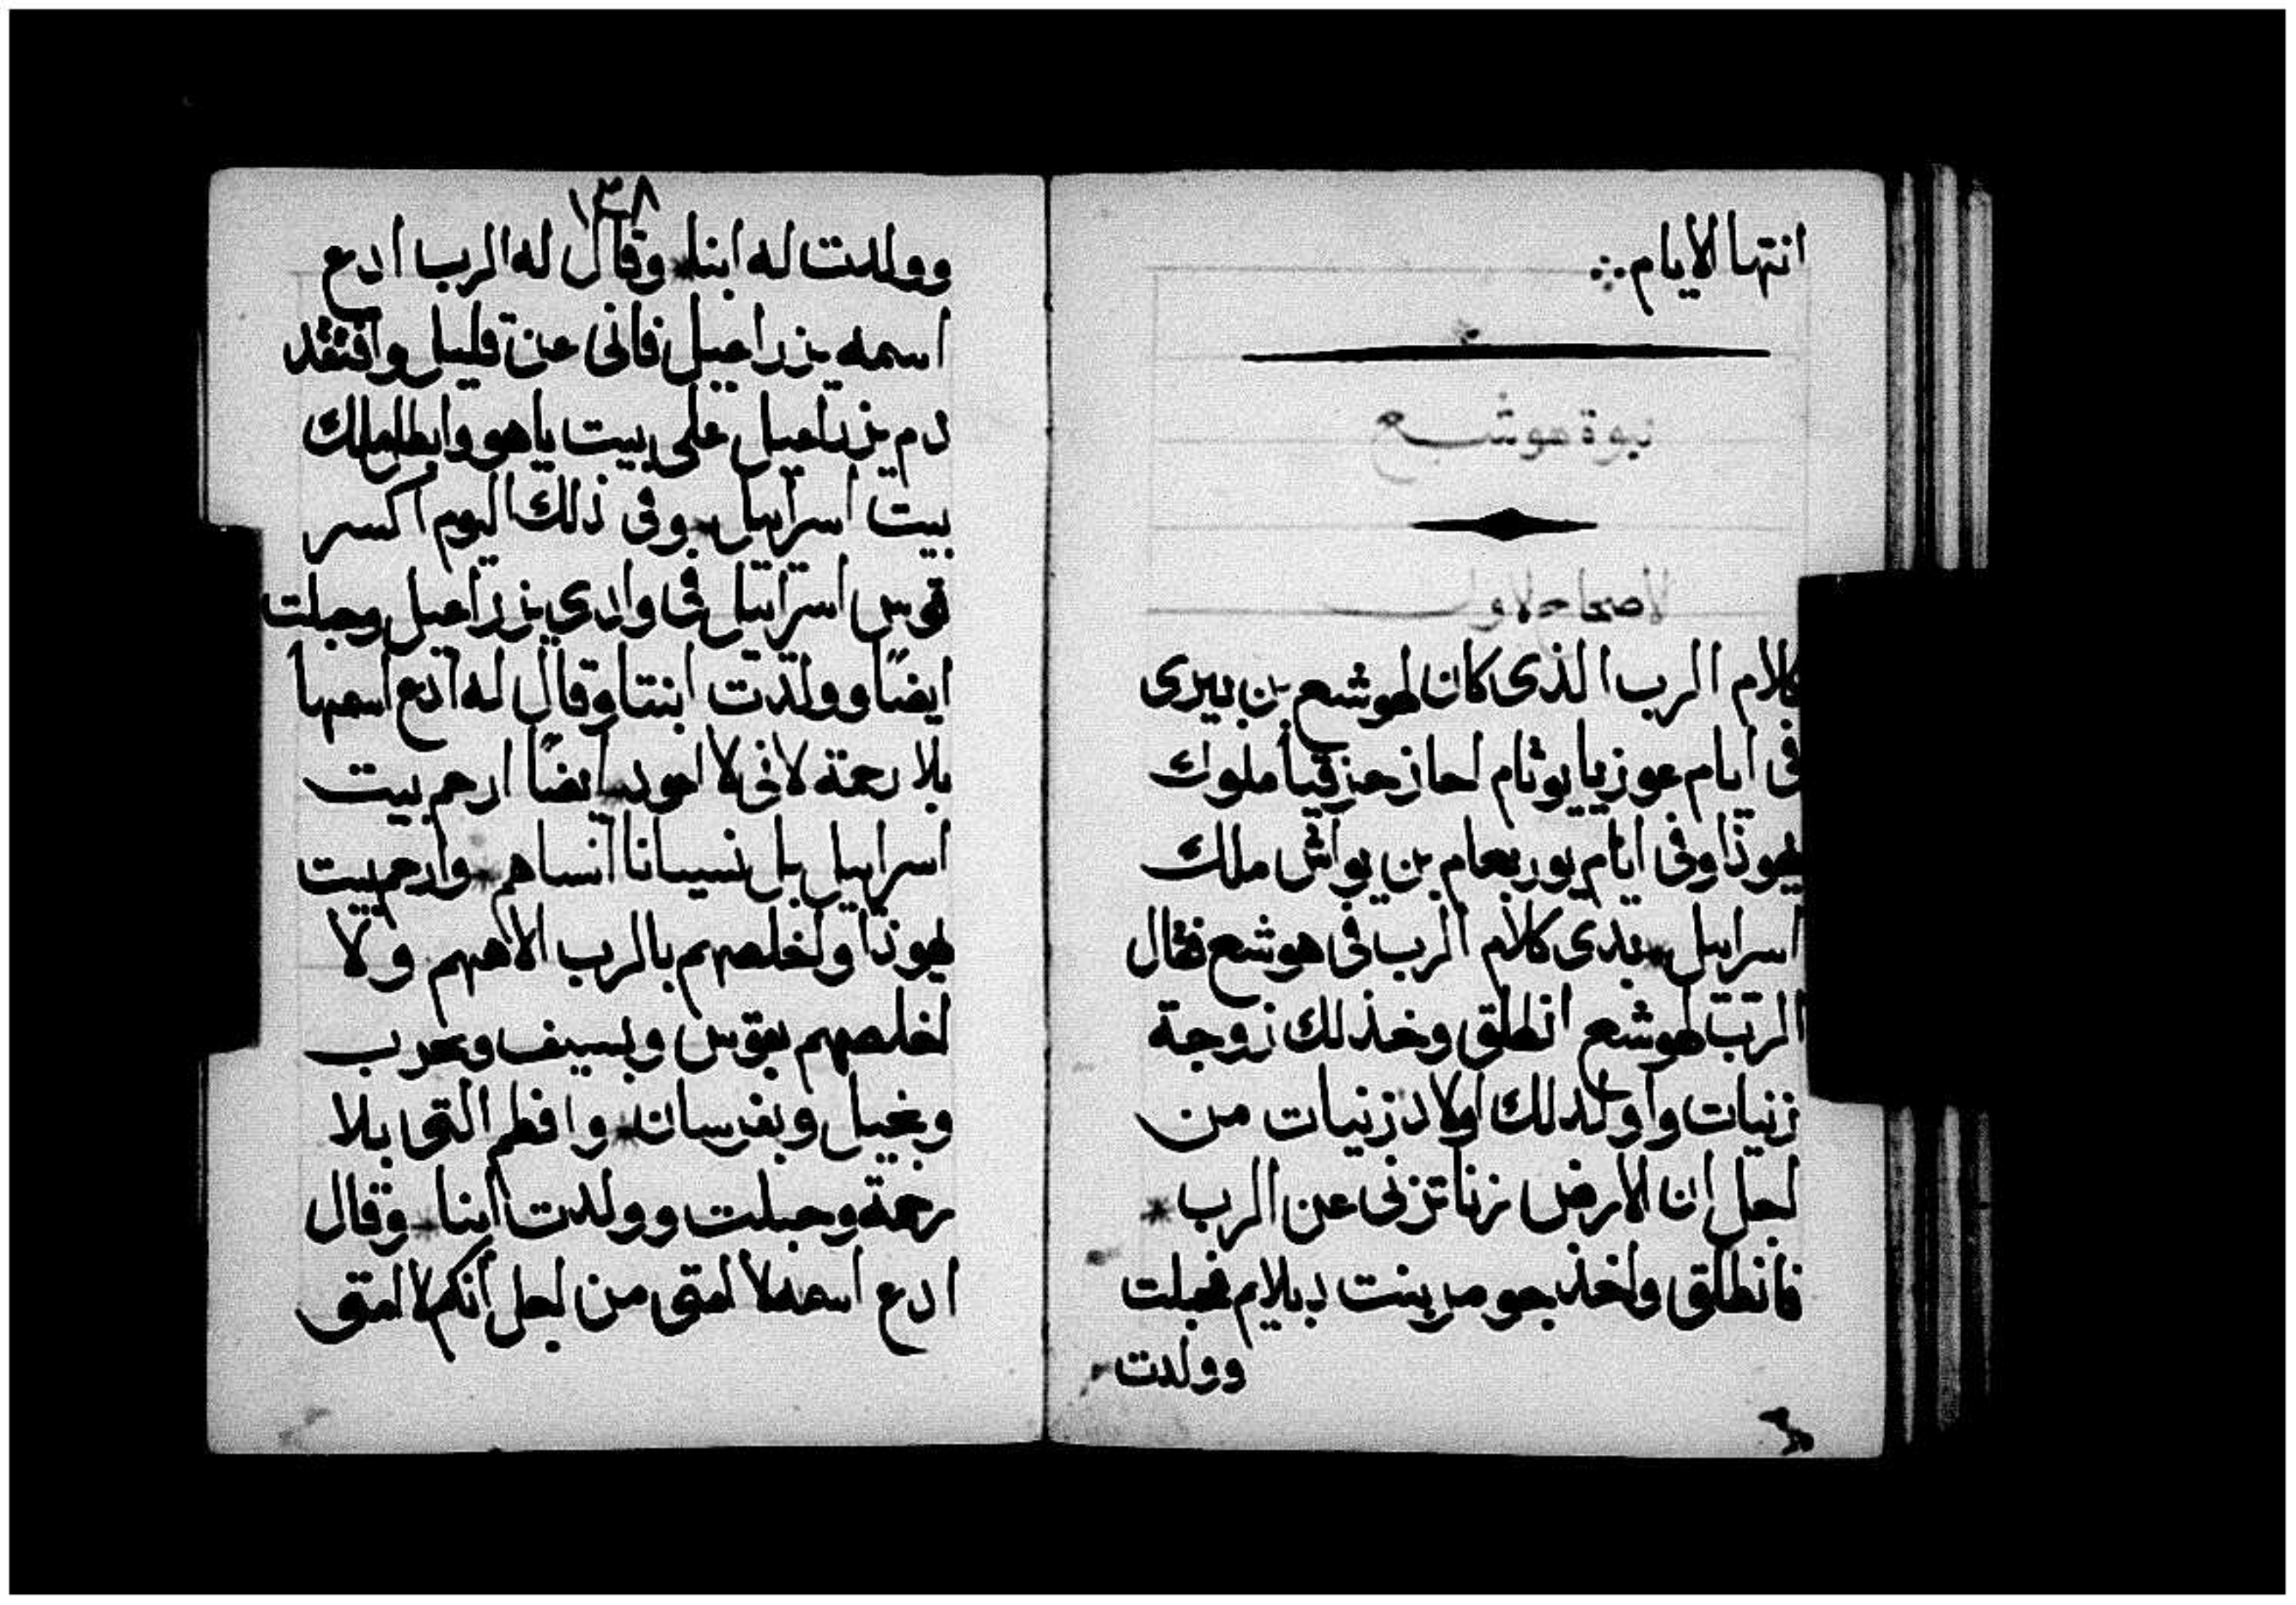 انتها الايام ∴
نبوة هوشع
الاصحاح الاول
كلام الرب الذى كان لهوشع بن بيرى
فى ايام عوزيا يوثام احاز حزقيا ملوك
يهوذا وفى ايام يوربعام بن يواش ملك
اسراييل * بدى كلام الرب فى هوشع فقال
الرب لهوشع انطلق وخذ لك زوجة
زنيات واولد لك اولاد زنيات من
اجل ان الارض زنا تزنى عن الرب *
فانطلق واخذ جومر بنت دبلايم فحبلت
وولدت
١٣٨
وولدت له ابنا * وقال له الرب ادع
اسمه يزراعيل فانى عن قليل وافتقد
دم يزراعيل على بيت ياهو وابطل ملك
بيت اسراييل * وفى ذلك اليوم اكسر
قوس اسراييل فى وادى يزراعيل وحبلت
ايضًا وولدت ابنتا وقال له ادع اسمها
بلا رحمة لانى لا اعود ايضًا ارحم بيت
اسراييل بل نسيانا انساهم * وارحم بيت
يهوذا واخلصهم بالرب الاههم ولا
اخلصهم بقوس وبسيف وبحرب
وبخيل وبفرسان * وافطم التى بلا
رحمة وحبلت وولدت ابنا * وقال
ادع اسمه لا امتى من اجل انكم لا امتى